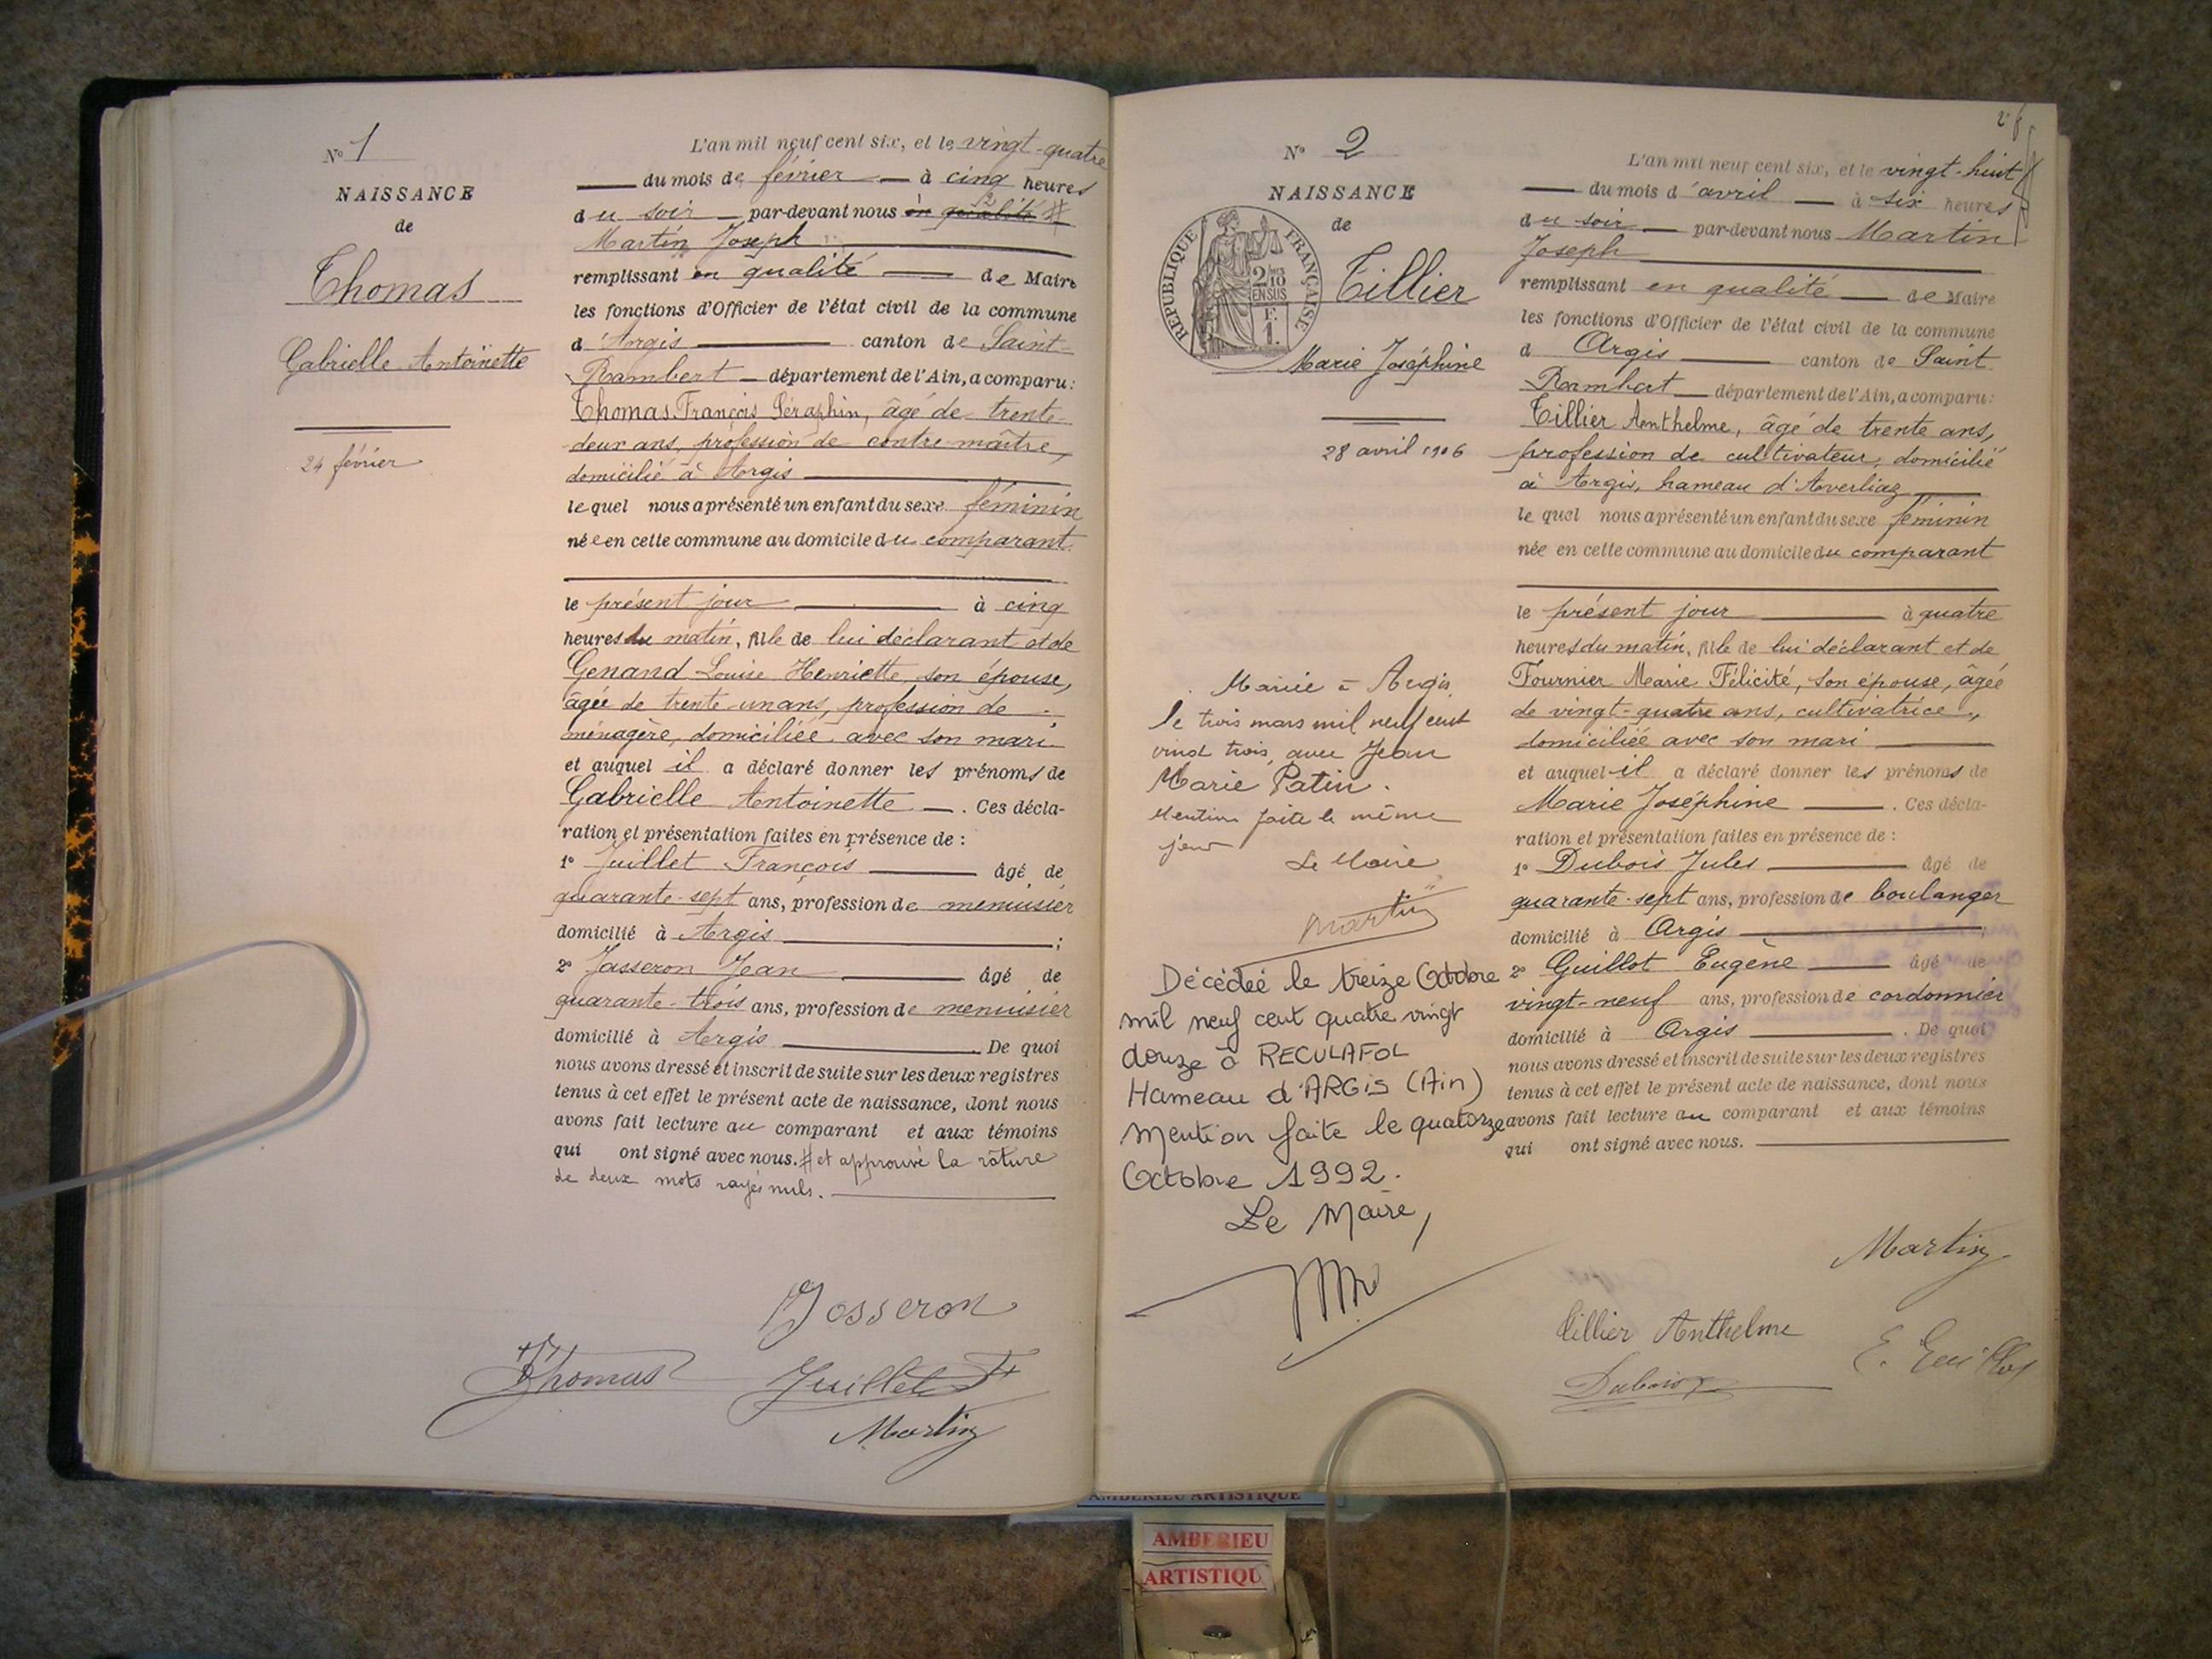 N° 1
NAISSANCE
de
Thomas
Gabrielle Antoinette
24 février
L'an mil neuf cent six, et le vingt-quatre
du mois de février à cinq heures
du soir par-devant nous en qualité #
Martin Joseph
remplissant en qualité de Maire
les fonctions d'Officier de l'état civil de la commune
d'Argis canton de Saint-
Rambert département de l'Ain, a comparu :
Thomas François Séraphin, âgé de trente-
deux ans, profession de contre-maître,
domicilié à Argis
lequel nous a présenté un enfant du sexe féminin
née en cette commune au domicile du comparant
le présent jour à cinq
heures du matin, fille de lui déclarant et de
Genand Louise Henriette, son épouse,
âgée de trente-un ans, profession de
ménagère, domiciliée avec son mari
et auquel il a déclaré donner les prénoms de
Gabrielle Antoinette. Ces décla-
ration et présentation faites en présence de :
1° Juillet François âgé de
quarante-sept ans, profession de menuisier
domicilié à Argis ;
2° Josseron Jean âgé de
quarante-trois ans, profession de menuisier
domicilié à Argis. De quoi
nous avons dressé et inscrit de suite sur les deux registres
tenus à cet effet le présent acte de naissance, dont nous
avons fait lecture au comparant et aux témoins
qui ont signé avec nous. # et approuvé la râture
de deux mots rayés nuls.
Josseron
Thomas Juillet
Martin
N° 2
NAISSANCE
de
RÉPUBLIQUE FRANÇAISE
2/10
EN SUS
F.
1.
Tillier
Marie Joséphine
28 avril 1906
Mariée à Argis,
le trois mars mil neuf cent
vingt trois, avec Jean
Marie Patin.
Mention faite le même
jour
Le Maire
Martin
Décédée le treize Octobre
mil neuf cent quatre vingt
douze à RECULAFOL
Hameau d'ARGIS (Ain)
Mention faite le quatorze
Octobre 1992.
Le Maire,
L'an mil neuf cent six, et le vingt-huit
du mois d'avril à six heures
du soir par-devant nous Martin
Joseph
remplissant en qualité de Maire
les fonctions d'Officier de l'état civil de la commune
d Argis canton de Saint
Rambert département de l'Ain, a comparu :
Tillier Anthelme, âgé de trente ans,
profession de cultivateur, domicilié
à Argis, hameau d'Averliaz
lequel nous a présenté un enfant du sexe féminin
née en cette commune au domicile du comparant
le présent jour à quatre
heures du matin, fille de lui déclarant et de
Fournier Marie Félicité, son épouse, âgée
de vingt-quatre ans, cultivatrice,
domiciliée avec son mari
et auquel il a déclaré donner les prénoms de
Marie Joséphine. Ces décla-
ration et présentation faites en présence de :
1° Dubois Jules âgé de
quarante-sept ans, profession de boulanger
domicilié à Argis ;
2° Guillot Eugène âgé de
vingt-neuf ans, profession de cordonnier
domicilié à Argis. De quoi
nous avons dressé et inscrit de suite sur les deux registres
tenus à cet effet le présent acte de naissance, dont nous
avons fait lecture au comparant et aux témoins
qui ont signé avec nous.
Martin
Tillier Anthelme
E. Guillot
Dubois
AMBERIEU ARTISTIQUE
AMBERIEU
ARTISTIQU